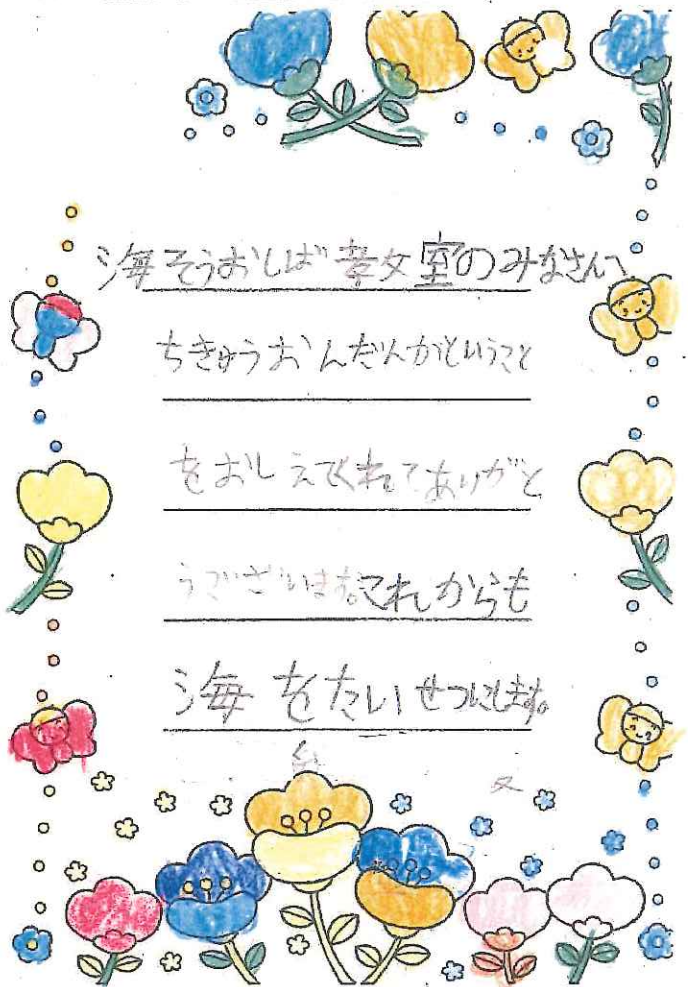 海そうおしば教室のみなさんへ
ちきゅうおんだんかということ
をおしえてくれてありがと
うございます。これからも
海をたいせつにします。